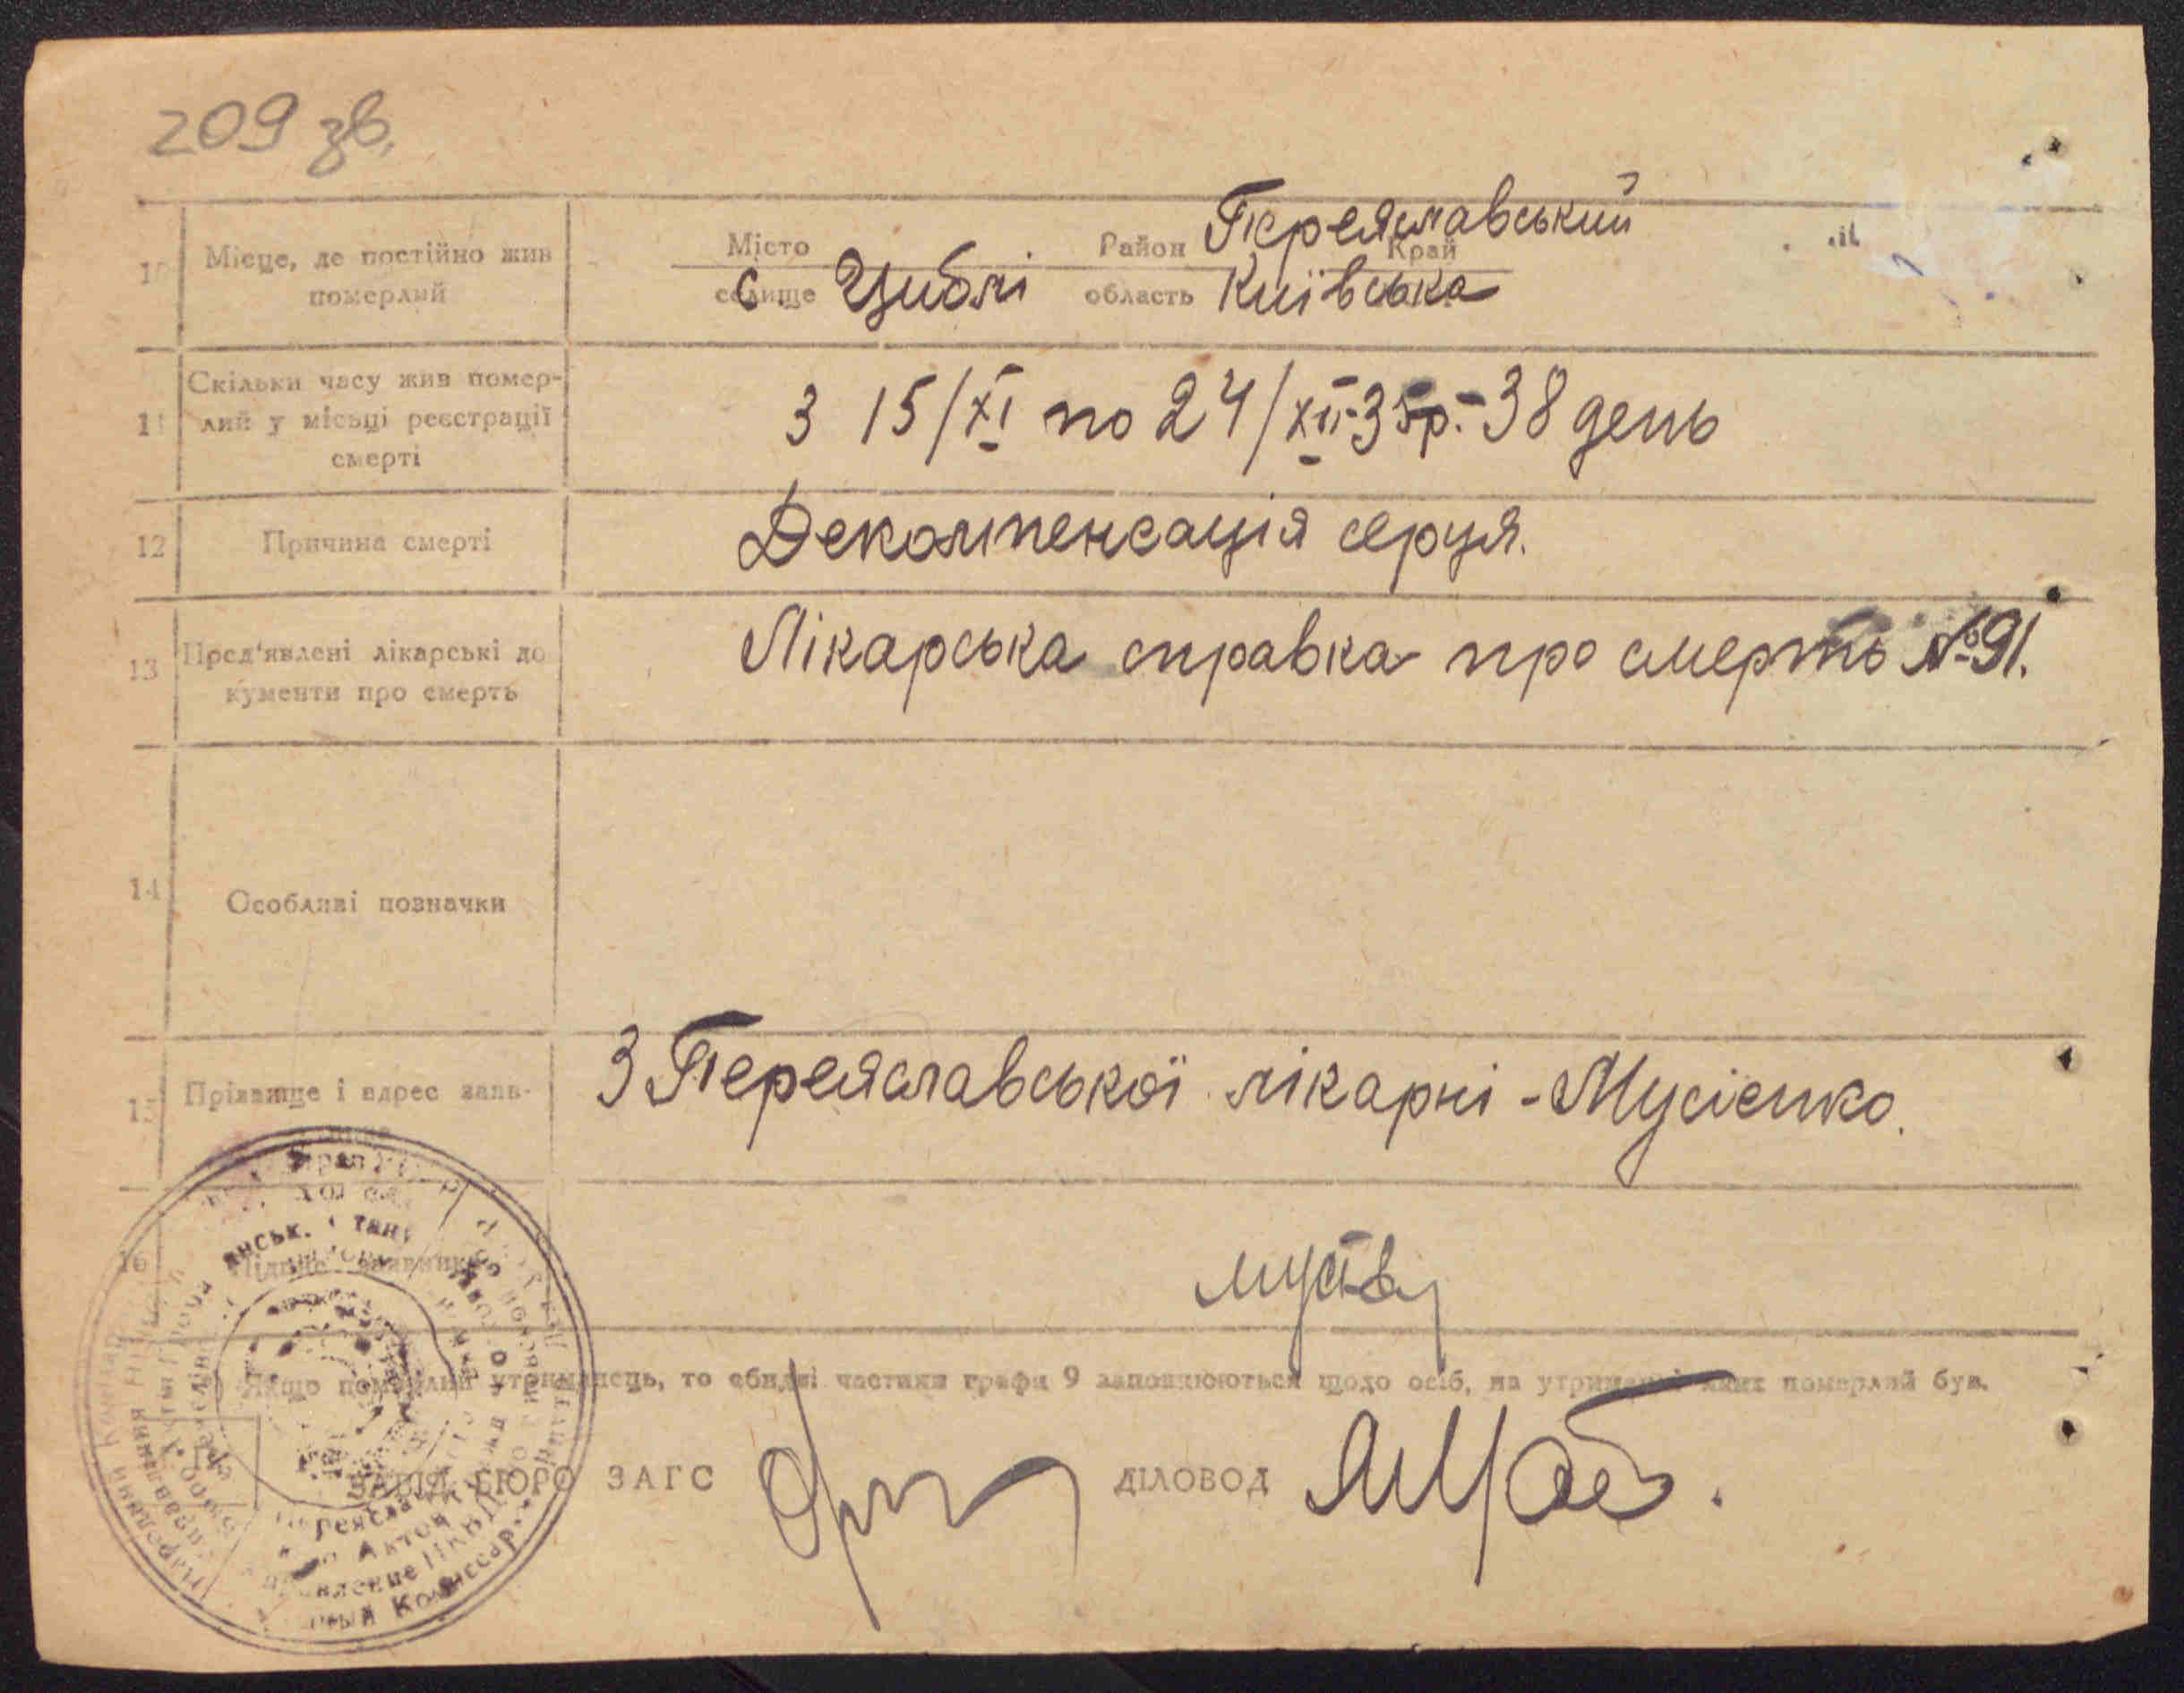 209 зв.
10 Місце, де постійно жив померлий
Місто Район Переяславський Край
селище с Циблі область Київська
11 Скільки часу жив помер-
лий у місьці реєстрації
смерті
З 15/XI по 24/XII-35р.-38 день
12 Причина смерті Декомпенсація серця.
13 Пред'явлені лікарські до
кументи про смерть
Лікарська справка про смерть №91.
14 Особливі позначки
15 Прізвище і адрес заяв-
З Переяславської лікарні - Мусієнко.
16 Підпис заявника
Якщо померлий утриманець, то обидві частини графи 9 заповнюються щодо осіб, на утриманні яких померлий був.
ЗАВІД. БЮРО ЗАГС ДІЛОВОД